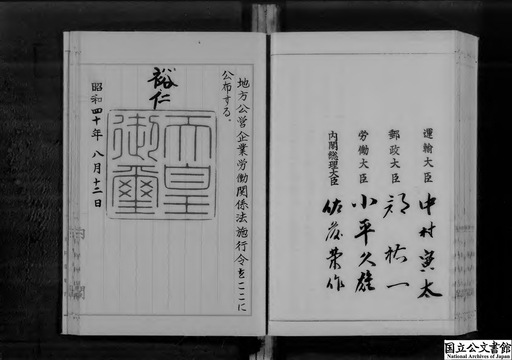 地方公営企業労働関係法施行令をここに
公布する。
裕仁
天皇
御璽
昭和四十年八月十二日
運輸大臣 中村寅太
郵政大臣 郡祐一
労働大臣 小平久雄
内閣総理大臣 佐藤榮作
国立公文書館
National Archives of Japan